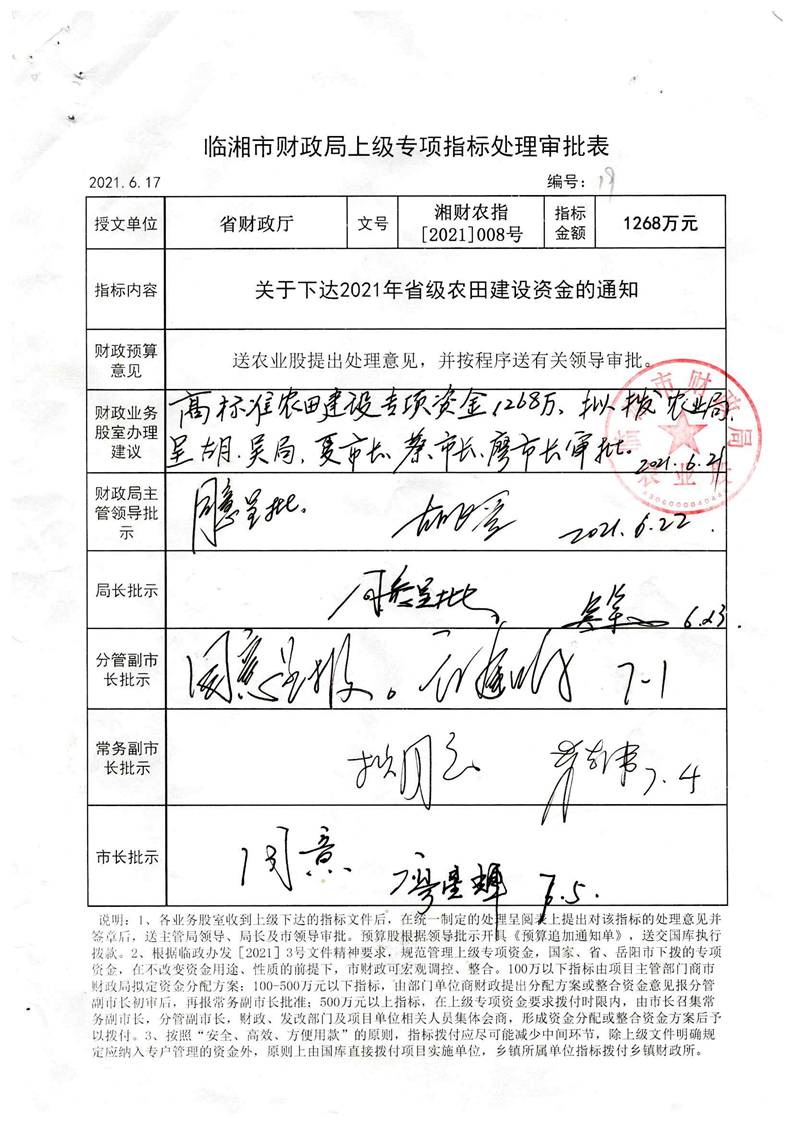 临湘市财政局上级专项指标处理审批表
2021.6.17 编号：19
授文单位 省财政厅 文号 湘财农指[2021]008号 指标金额 1268万元
指标内容 关于下达2021年省级农田建设资金的通知
财政预算意见 送农业股提出处理意见，并按程序送有关领导审批。
财政业务股室办理建议 高标准农田建设专项资金1268万，拟拨农业局，
呈胡、吴局、夏市长、蔡市长、廖市长审批。
2021.6.21
市财政局
农业股
财政局主管领导批示 同意呈批。 2021.6.22.
局长批示 同意呈批 6.23.
分管副市长批示 同意呈报。 7-1
常务副市长批示 拟同意 7.4
市长批示 同意 廖星辉 7.5.
说明：1、各业务股室收到上级下达的指标文件后，在统一制定的处理呈阅表上提出对该指标的处理意见并
签章后，送主管局领导、局长及市领导审批。预算股根据领导批示开具《预算追加通知单》，送交国库执行
拨款。2、根据临政办发［2021］3号文件精神要求，规范管理上级专项资金，国家、省、岳阳市下拨的专项
资金，在不改变资金用途、性质的前提下，市财政可宏观调控、整合。100万以下指标由项目主管部门商市
财政局拟定资金分配方案；100-500万元以下指标，由部门单位商财政提出分配方案或整合资金意见报分管
副市长初审后，再报常务副市长批准；500万元以上指标，在上级专项资金要求拨付时限内，由市长召集常
务副市长，分管副市长，财政、发改部门及项目单位相关人员集体会商，形成资金分配或整合资金方案后予
以拨付。3、按照“安全、高效、方便用款”的原则，指标拨付应尽可能减少中间环节，除上级文件明确规
定应纳入专户管理的资金外，原则上由国库直接拨付项目实施单位，乡镇所属单位指标拨付乡镇财政所。